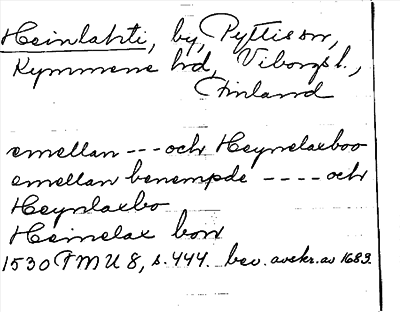 Heinlahti, by, Pyttis sn,
Kymmene hd, Viborgs l.,
Finland
emellan --- och Heynelaxboo
emellan benempde ---- och
Heynlaxbo
Heinelax boxx
1530 FMU 8, s. 444. bev. avskr. av 1683.